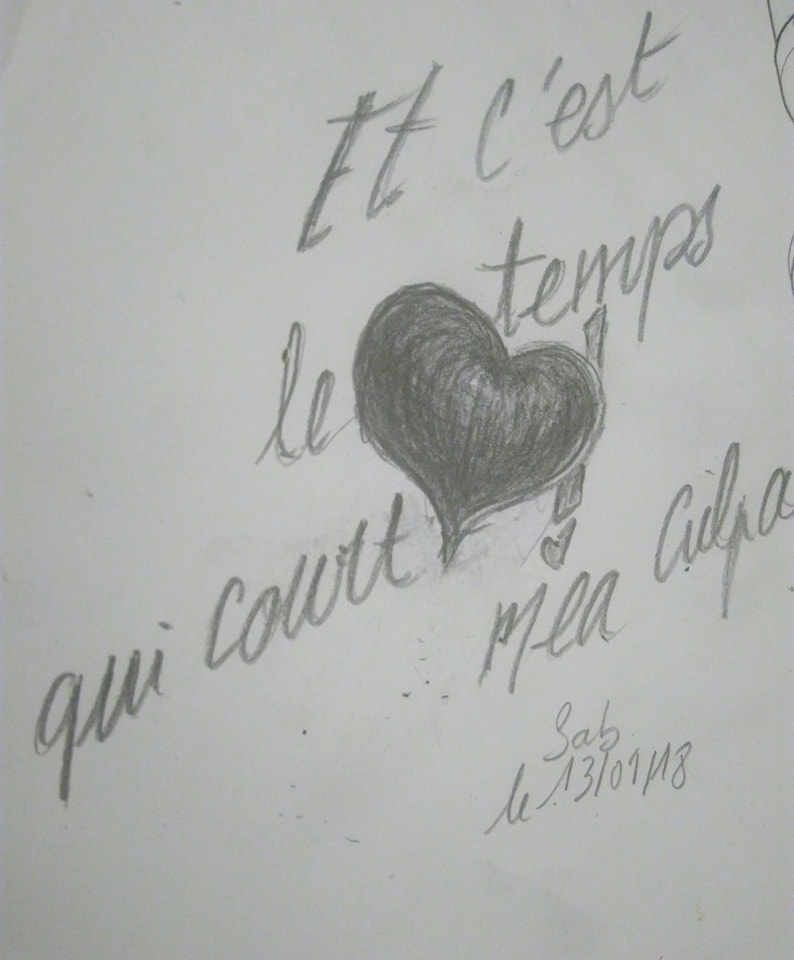 Et c'est
le temps
qui court
Mea Culpa
Sab
le 13/01/18